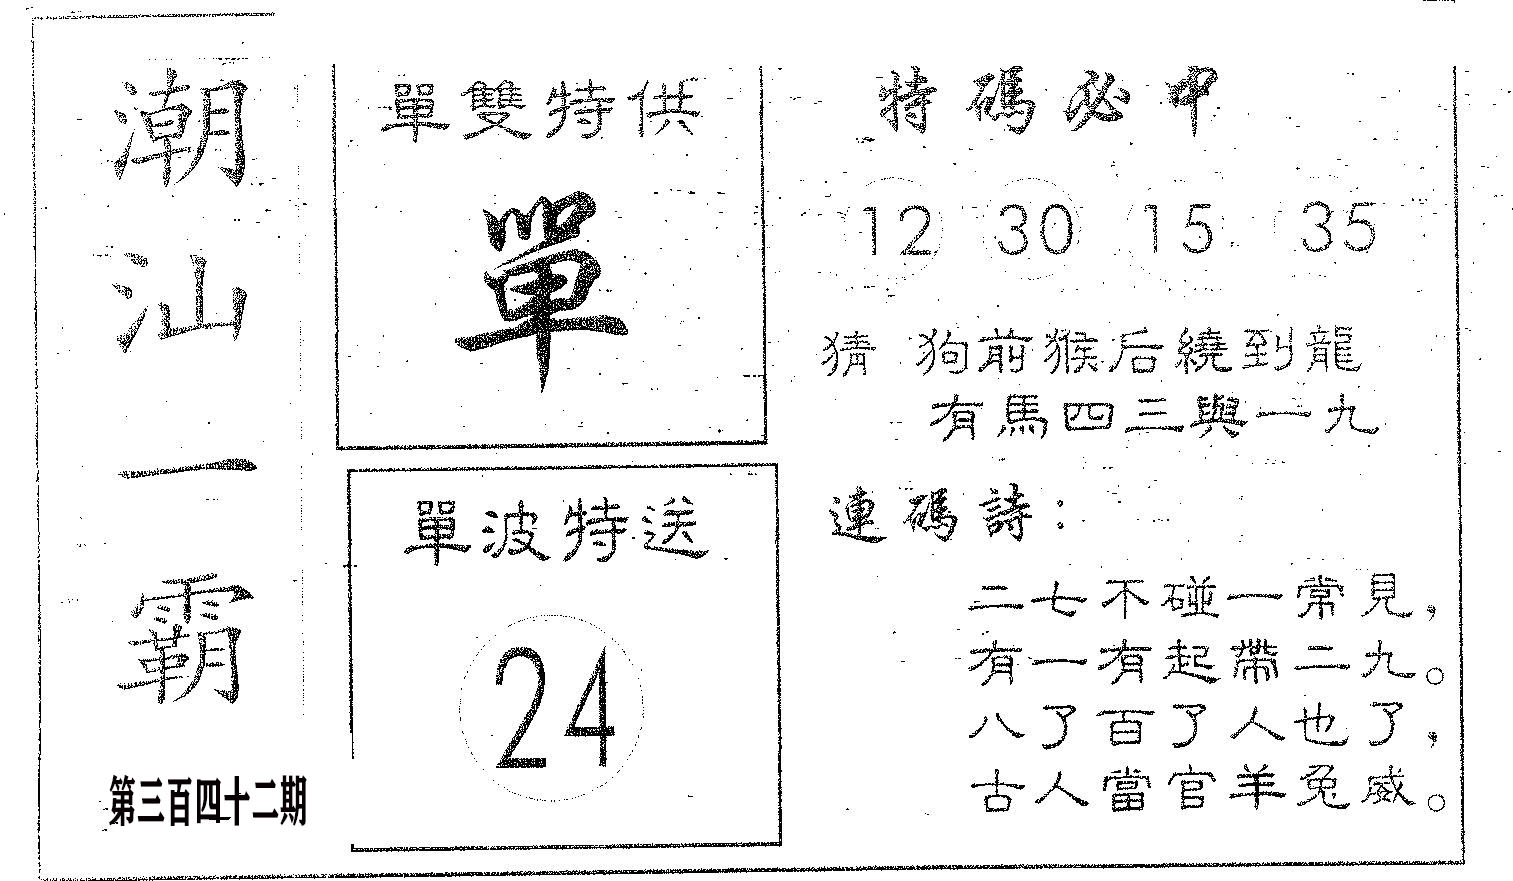 潮汕一霸
第三百四十二期
單雙特供
單
單波特送
24
特碼必中
12 30 15 35
猜 狗前猴后繞到龍
有馬四三與一九
連碼詩：
二七不碰一常見，
有一有起帶二九。
八了百了人也了，
古人當官羊兔威。